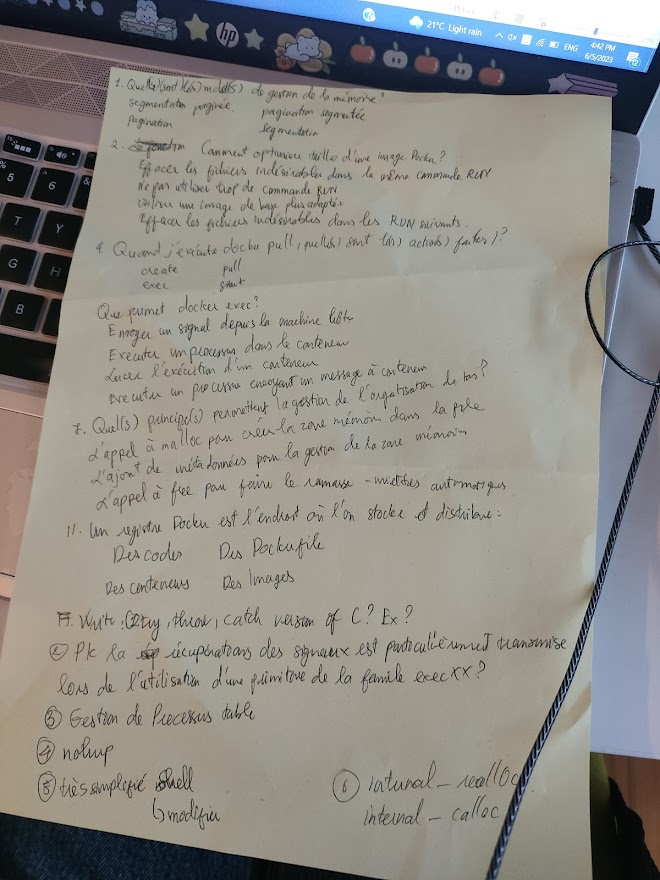 21°C Light rain
ENG
4:42 PM
6/5/2023
hp
1. Quel(s) sont le(s) modèle(s) de gestion de la mémoire?
segmentation paginée pagination segmentée
pagination segmentation
2. Comment optimiser taille d'une image Docker?
Effacer les fichiers indésirables dans la même commande RUN
Ne pas utiliser trop de commande RUN
Utiliser une image de base plus adaptée
Effacer les fichiers indésirables dans les RUN suivants.
Quand j'exécute docker pull, quelle(s) sont la(s) action(s) faite(s)?
create pull
exec start
Que permet docker exec?
Envoyer un signal depuis la machine hôte
Executer un processus dans le conteneur
Lancer l'exécution d'un conteneur
Executer un processus envoyant un message à conteneur
7. Quel(s) principe(s) permettent la gestion de l'organisation de tas?
L'appel à malloc pour créer la zone mémoire dans la pile
L'ajout de métadonnées pour la gestion de la zone mémoire
L'appel à free pour faire le ramasse-miettes automatiques
11. Un registre Docker est l'endroit où l'on stocke et distribue:
Des codes Des Dockerfile
Des conteneurs Des Images
Write: try, throw, catch version of C? Ex?
② Pk la récupérations des signaux est particulièrement transmise
lors de l'utilisation d'une primitive de la famille execXX?
③ Gestion de Processus table
④ nohup
⑤ très simplifié shell
↳ modifier
⑥ internal_realloc
internal_calloc